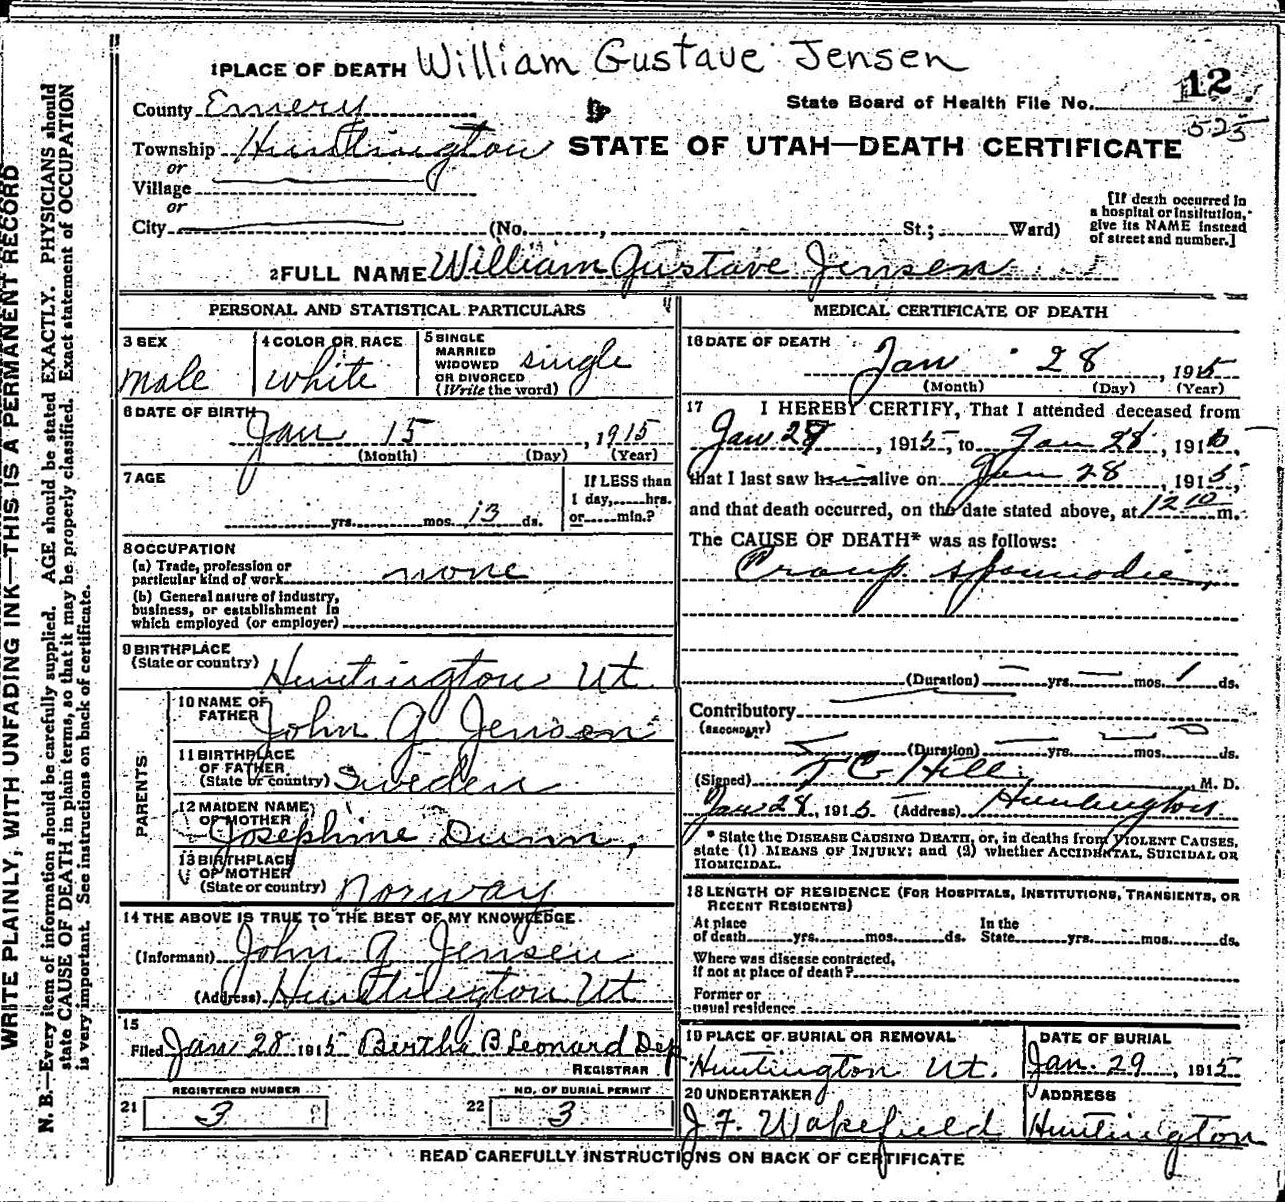 1 PLACE OF DEATH William Gustave Jensen
12
County Emery
State Board of Health File No.
525
Township Huntington
STATE OF UTAH—DEATH CERTIFICATE
or
Village
or
City (No. , St.; Ward)
[If death occurred in
a hospital or institution,
give its NAME instead
of street and number.]
2 FULL NAME William Gustave Jensen
PERSONAL AND STATISTICAL PARTICULARS
3 SEX
male
4 COLOR OR RACE
white
5 SINGLE
MARRIED
WIDOWED
OR DIVORCED
(Write the word)
single
6 DATE OF BIRTH
Jan 15, 1915
(Month) (Day) (Year)
7 AGE
yrs. mos. 13 ds.
If LESS than
1 day, hrs.
or min.?
8 OCCUPATION
(a) Trade, profession or
particular kind of work none
(b) General nature of industry,
business, or establishment in
which employed (or employer)
9 BIRTHPLACE
(State or country) Huntington Ut.
PARENTS
10 NAME OF
FATHER John A Jensen
11 BIRTHPLACE
OF FATHER
(State or country) Sweden
12 MAIDEN NAME
OF MOTHER
Josephine Dunn,
13 BIRTHPLACE
OF MOTHER
(State or country) Norway
14 THE ABOVE IS TRUE TO THE BEST OF MY KNOWLEDGE
(Informant) John A Jensen
(Address) Huntington Ut
15
Filed Jan 28 1915 Bertha B Leonard Dep
REGISTRAR
REGISTERED NUMBER
21 3
NO. OF BURIAL PERMIT
22 3
MEDICAL CERTIFICATE OF DEATH
16 DATE OF DEATH
Jan 28, 1915
(Month) (Day) (Year)
17 I HEREBY CERTIFY, That I attended deceased from
Jan 28, 1915, to Jan 28, 1915,
that I last saw him alive on Jan 28, 1915,
and that death occurred, on the date stated above, at 12 10 m.
The CAUSE OF DEATH* was as follows:
Croup spasmodic,
(Duration) yrs. mos. 1 ds.
Contributory
(SECONDARY)
(Duration) yrs. mos. ds.
(Signed) T C Hill, M. D.
Jan 28, 1915 (Address) Huntington
* State the DISEASE CAUSING DEATH, or, in deaths from VIOLENT CAUSES,
state (1) MEANS OF INJURY; and (2) whether ACCIDENTAL, SUICIDAL OR
HOMICIDAL.
18 LENGTH OF RESIDENCE (FOR HOSPITALS, INSTITUTIONS, TRANSIENTS, OR
RECENT RESIDENTS)
At place
of death yrs. mos. ds.
In the
State yrs. mos. ds.
Where was disease contracted,
if not at place of death?
Former or
usual residence
19 PLACE OF BURIAL OR REMOVAL
Huntington Ut.
DATE OF BURIAL
Jan. 29, 1915
20 UNDERTAKER
J F. Wakefield
ADDRESS
Huntington
READ CAREFULLY INSTRUCTIONS ON BACK OF CERTIFICATE
WRITE PLAINLY, WITH UNFADING INK—THIS IS A PERMANENT RECORD
N. B.—Every item of information should be carefully supplied. AGE should be stated EXACTLY. PHYSICIANS should
state CAUSE OF DEATH in plain terms, so that it may be properly classified. Exact statement of OCCUPATION
is very important. See instructions on back of certificate.